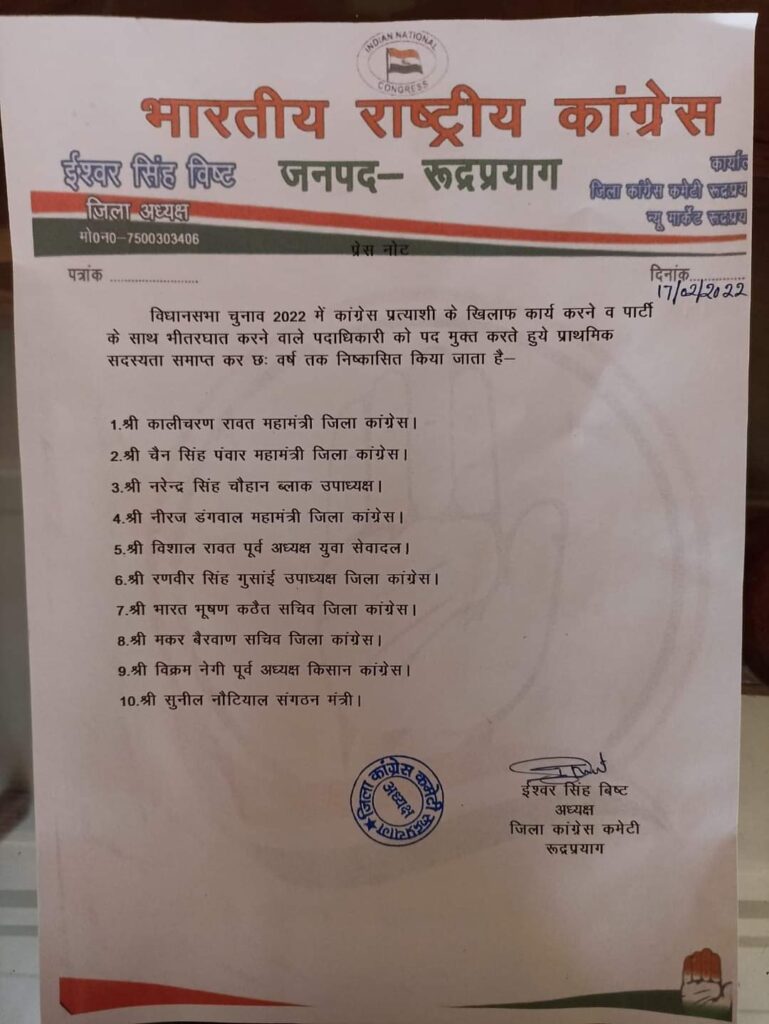 INDIAN NATIONAL
CONGRESS
भारतीय राष्ट्रीय कांग्रेस
ईश्वर सिंह विष्ट
जनपद– रूद्रप्रयाग
जिला अध्यक्ष
मो0न0–7500303406
जिला कांग्रेस कमेटी
न्यू मार्केट
प्रेस नोट
पत्रांक ........................
दिनांक...............
17/02/2022
विधानसभा चुनाव 2022 में कांग्रेस प्रत्याशी के खिलाफ कार्य करने व पार्टी
के साथ भीतरघात करने वाले पदाधिकारी को पद मुक्त करते हुये प्राथमिक
सदस्यता समाप्त कर छः वर्ष तक निष्कासित किया जाता है–
1.श्री कालीचरण रावत महामंत्री जिला कांग्रेस।
2.श्री चैन सिंह पंवार महामंत्री जिला कांग्रेस।
3.श्री नरेन्द्र सिंह चौहान ब्लाक उपाध्यक्ष।
4.श्री नीरज डंगवाल महामंत्री जिला कांग्रेस।
5.श्री विशाल रावत पूर्व अध्यक्ष युवा सेवादल।
6.श्री रणवीर सिंह गुसांई उपाध्यक्ष जिला कांग्रेस।
7.श्री भारत भूषण कठैत सचिव जिला कांग्रेस।
8.श्री मकर बैरवाण सचिव जिला कांग्रेस।
9.श्री विक्रम नेगी पूर्व अध्यक्ष किसान कांग्रेस।
10.श्री सुनील नौटियाल संगठन मंत्री।
जिला कांग्रेस कमेटी रूद्रप्रयाग
अध्यक्ष
ईश्वर सिंह बिष्ट
अध्यक्ष
जिला कांग्रेस कमेटी
रूदप्रयाग